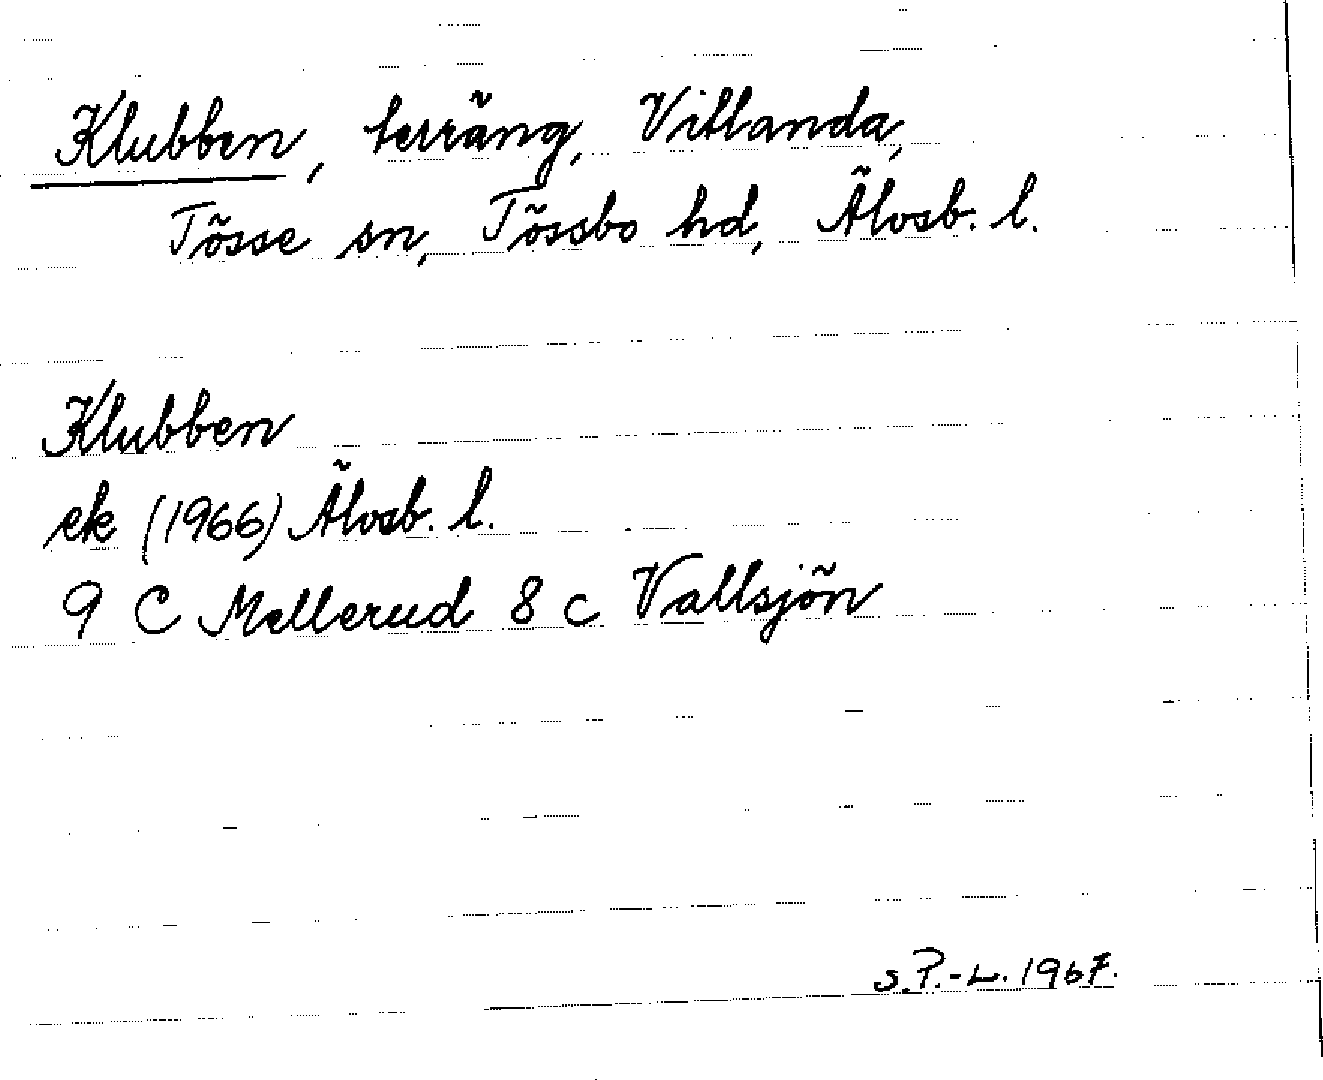 Klubben, terräng, Vitlanda,
Tösse sn, Tössbo hd, Älvsb. l.
Klubben
ek (1966) Älvsb. l.
9 C Mellerud 8 c Vallsjön
S.P.-L. 1967.